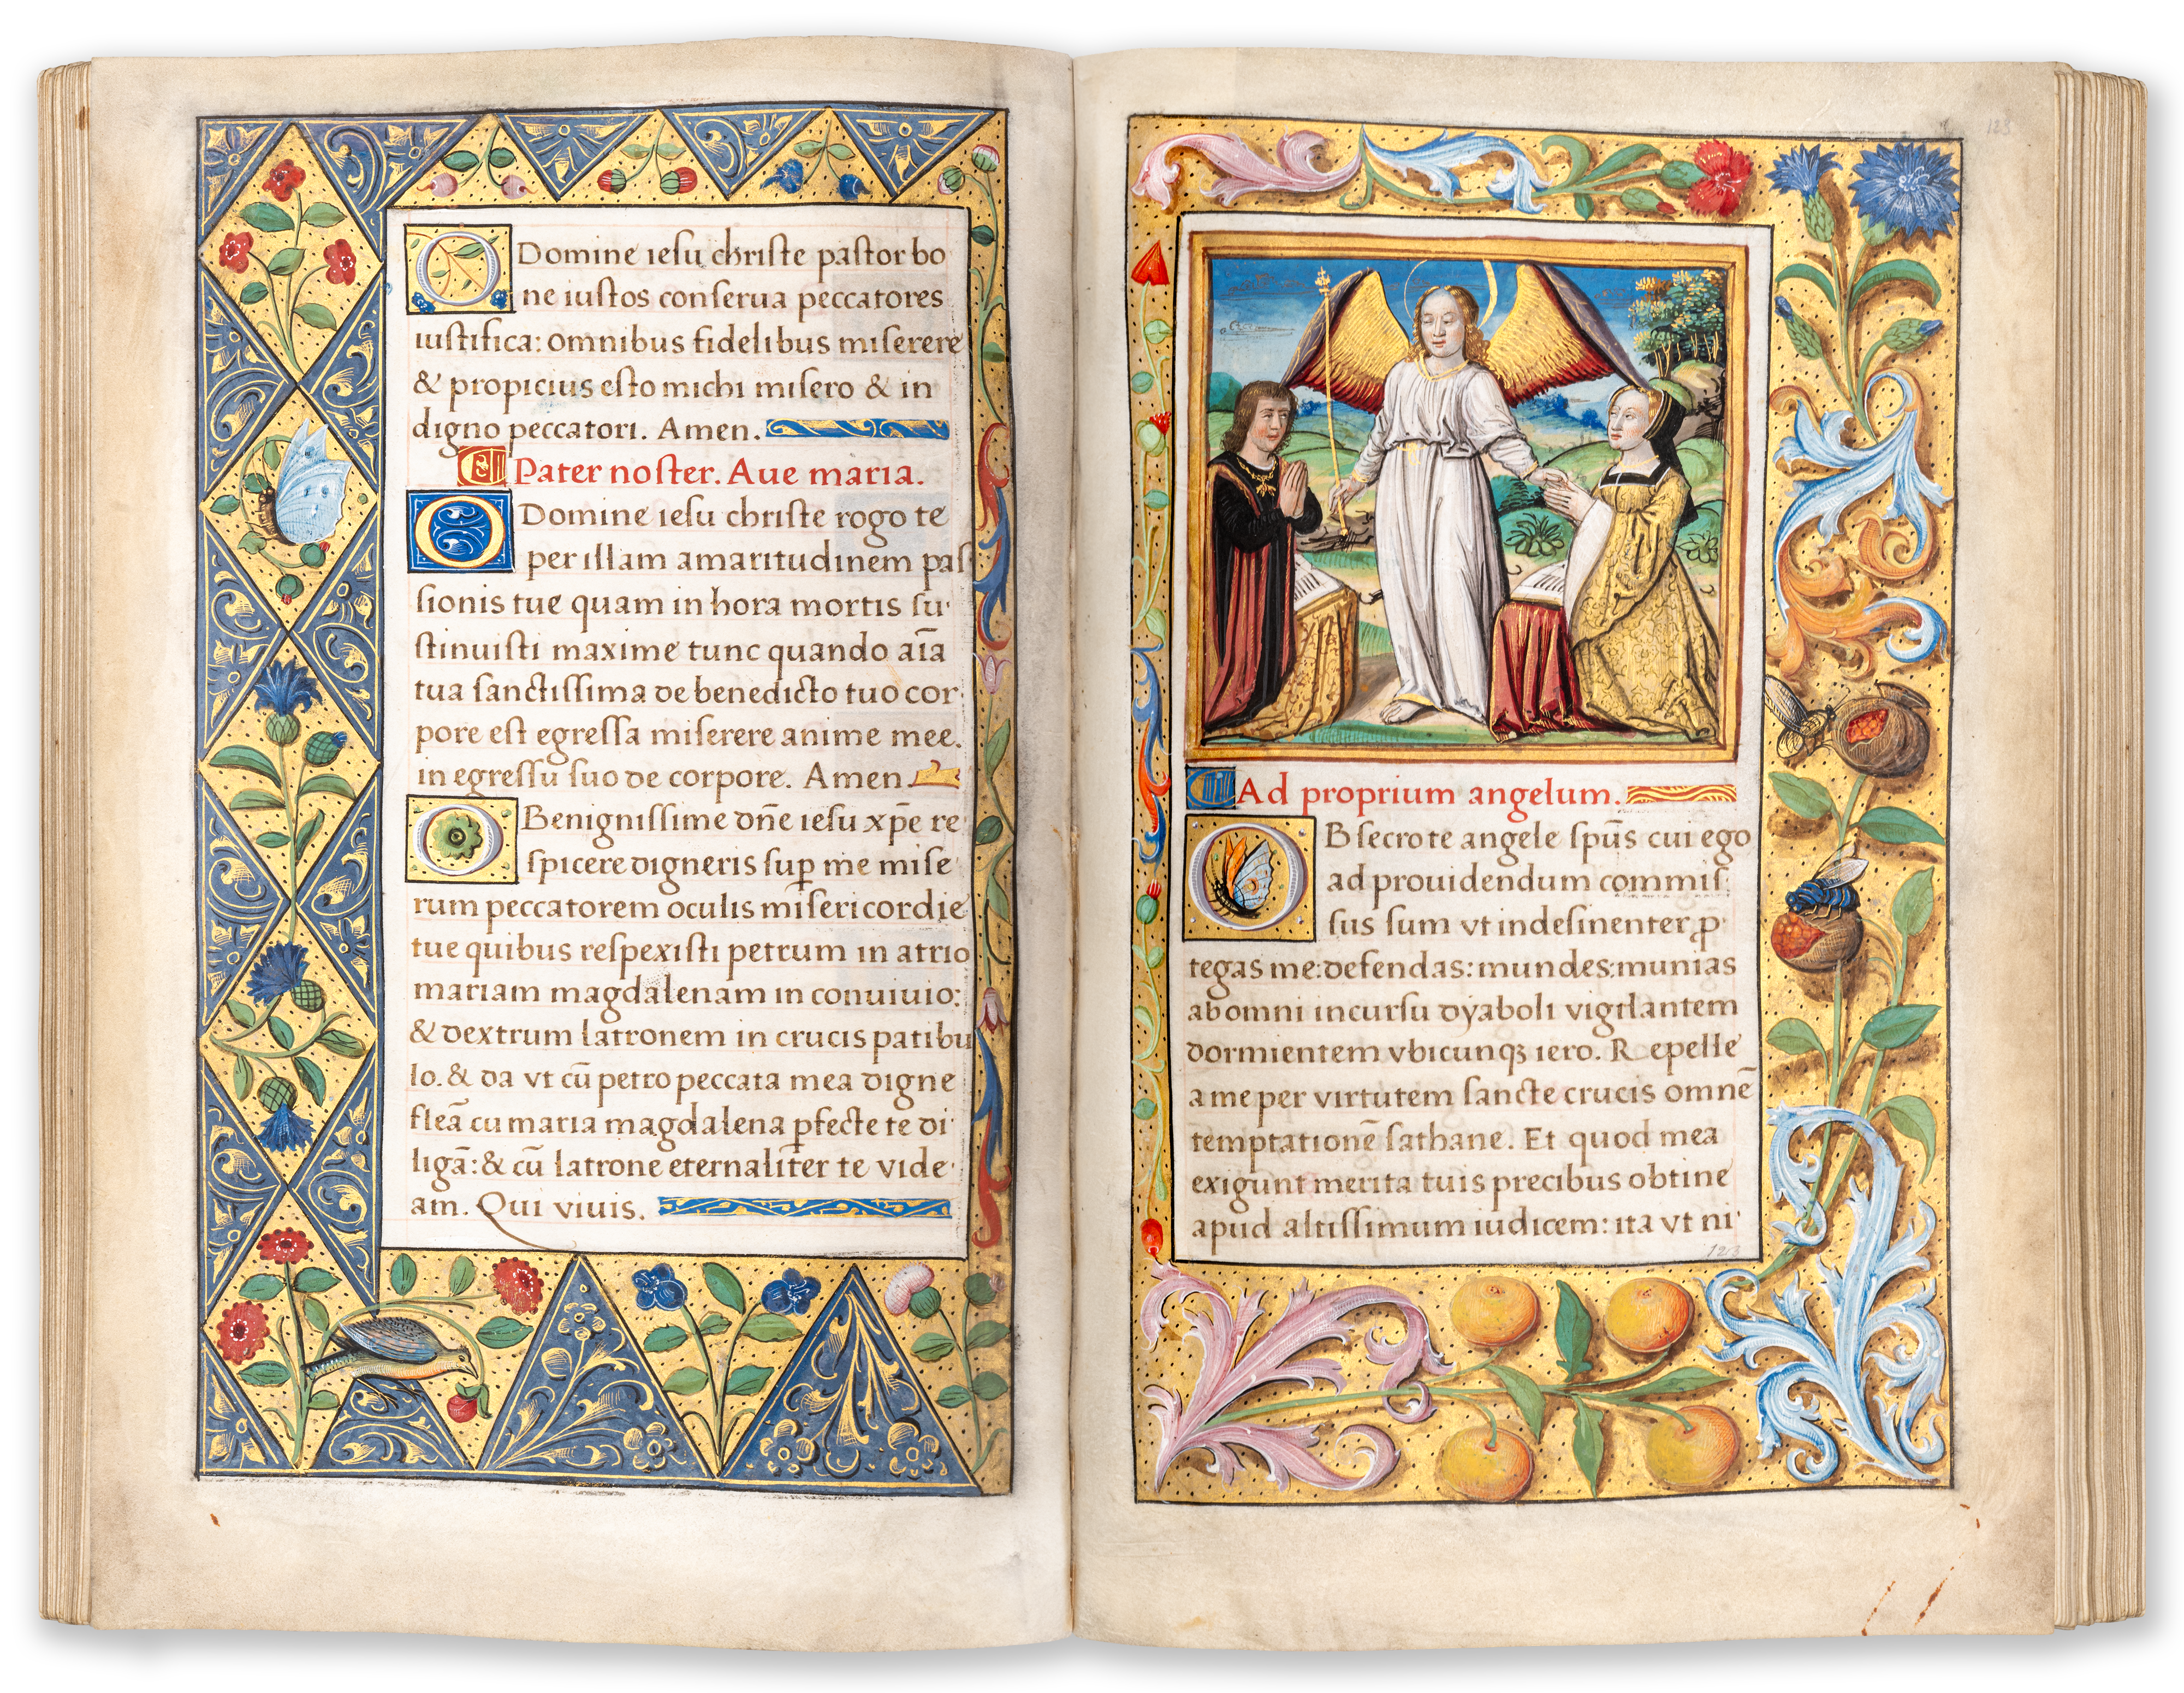 O Domine iesu christe pastor bo
ne iustos conserua peccatores
iustifica: omnibus fidelibus miserere
& propicius esto michi misero & in
digno peccatori. Amen.
Pater noster. Aue maria.
O Domine iesu christe rogo te
per illam amaritudinem pas
sionis tue quam in hora mortis su
stinuisti maxime tunc quando aīa
tua sanctissima de benedicto tuo cor
pore est egressa miserere anime mee.
in egressu suo de corpore. Amen
O Benignissime dn̄e iesu xp̄e re
spicere digneris sup̱ me mise
rum peccatorem oculis misericordie
tue quibus respexisti petrum in atrio
mariam magdalenam in conuiuio:
& dextrum latronem in crucis patibu
lo. & da vt cū petro peccata mea digne
fleā cu maria magdalena ꝑfecte te di
ligā: & cū latrone eternaliter te vide
am. Qui viuis.
123
Ad proprium angelum.
OBsecro te angele sp̄us cui ego
ad prouidendum commis
sus sum vt indesinenter ꝓ
tegas me: defendas: mundes: munias
ab omni incursu dyaboli vigilantem
dormientem vbicunqꝫ iero. Repelle
a me per virtutem sancte crucis omnē
temptationē sathane. Et quod mea
exigunt merita tuis precibus obtine
apud altissimum iudicem: ita vt ni
123